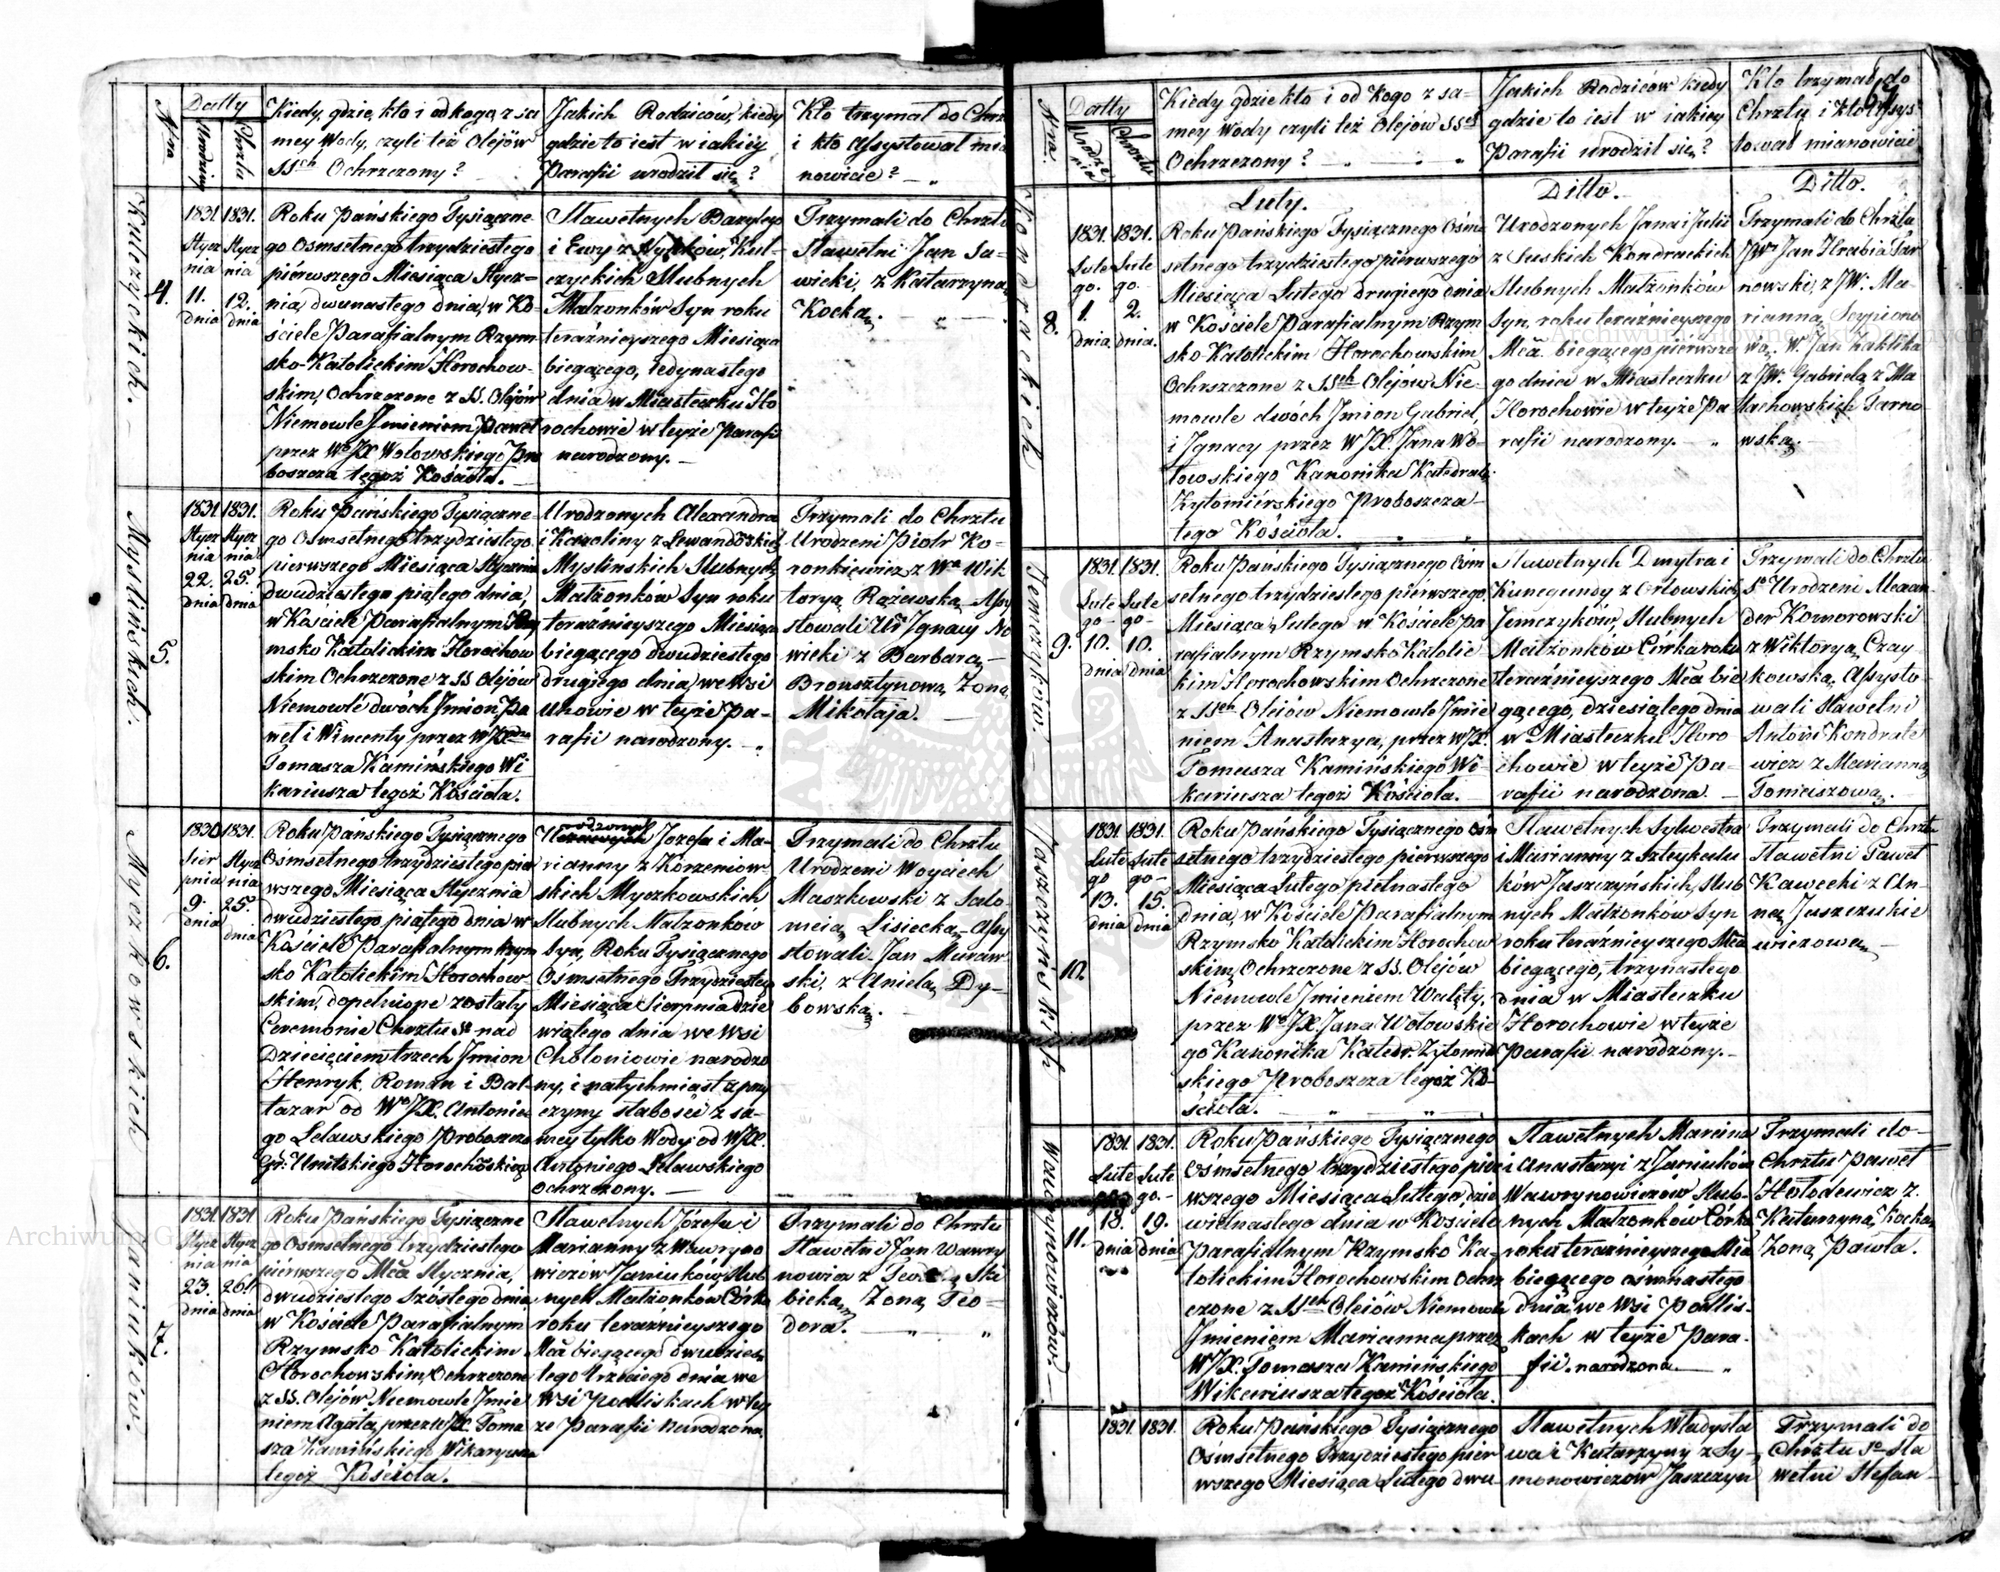 Nra
Datty
Urodzin
Chrztu
Kiedy, gdzie, kto i od kogo, z sa
mey Wody, czyli też Olejów
SSch Ochrzczony?
Jakich Rodziców, kiedy
gdzie to iest w iakiéy
Parafii urodził się?
Kto trzymał do Chrz
i kto Assystował mia
nowicie?
Kulczyckich.
4.
1831
Stycz
nia
11.
dnia
1831.
Stycz
nia
12.
dnia
Roku Pańskiego Tysiączne
go osmsetnego trzydziestego
piérwszego Miesiąca Stycz=
nia, dwunastego dnia, w Ko-
ściele Parafialnym Rzym
sko-Katolickim Horochow-
skim, Ochrzczone z SS. Olejów
Niemowle Jmieniem Paweł
przez Wo JX Wołowskiego Pro
boszcza tegoż Kościoła.
Sławetnych Bazylego
i Ewy z Kul-
czyckich Slubnych
Małżonków Syn roku
teraźnieyszego Miesiąca
biegącego, Jedynastego
dnia w Miasteczku Ho
rochowie w teyże Parafii
narodzony.
Trzymali do Chrztu
Sławetni Jan Sa-
wicki, z Katarzyną
Kocką.
Myslińskich.
5.
1831
Stycz
nia
22.
dnia
1831.
Stycz
nia
25.
dnia
Roku Pańskiego Tysiączne
go Osmsetnego trzydziestego
pierwszego Miesiąca Stycznia
dwudziestego piątego dnia,
w Kościele Parafialnym Rzy
msko Katolickim Horochow
skim Ochrzczone z SS Olejów
Niemowlé dwóch Jmion Pa
weł i Wincenty przez WJX
Tomasza Kamińskiego Wi
kariusza tegoż Kościoła.
Urodzonych Alexandra
i Karoliny z Lewandoskich
Myslińskich Slubnych
Małżonków Syn roku
teraźnieyszego Miesiąca
biegącego dwudziestego
drugiego dnia, we Wsi
Uhowie w teyże Pa-
rafii narodzony.
Trzymali do Chrztu
Urodzeni Piotr Ko-
ronkiewicz z Wą Wik
toryą Rażewską, Assy
stowali Ur Jgnacy No
wicki z Barbarą
Bronsztynową Żoną
Mikołaja.
Myczkowskich
6.
1830
Sier
pnia
9.
dnia
1831.
Stycz
nia
25.
dnia
Roku Pańskiego Tysiącznego
Ósmsetnego trzydziestego pier
wszego Miesiąca Stycznia
dwudziestego piątego dnia w
Kościele Parafialnym Rzym
sko Katolickim Horochow-
skim, dopełnione zostały
Ceremonie Chrztu So nad
Dziecięciem trzech Jmion
Henryk, Roman i Bal-
tazar od Wo JX. Antonie
go Lelawskiego Proboszcza
Gr: Unitskiego Horochoskiego
Urodzonych Jozefa i Ma-
rianny z Korzeniow-
skich Myczkowskich
Slubnych Małżonków
Syn, Roku Tysiącznego
Osmsetnego Trzydziestego
Miesiąca Sierpnia dzie
wiątego dnia we Wsi
Chołoniowie narodzo
ny, i natychmiast z przy
czyny słabości z sa-
mey tylko Wody od WJX.
Antoniego Lelawskiego
ochrzczony.
Trzymali do Chrztu
Urodzeni Woyciech
Maszkowski z Salo-
meią Lisiecką Assy
stowali Jan Muraw
ski, z Anielą Dy-
bowską.
Janiuków.
7.
1831
Stycz
nia
23.
dnia
1831
Stycz
nia
26.
dnia
Roku Pańskiego Tysiączne
go Osmsetnego trzydziestego
piérwszego Mca Stycznia,
dwudziestego Szóstego dnia
w Kościele Parafialnym
Rzymsko Katolickim
Horochowskim, Ochrzczone
z SS. Olejów Niemowle Jmie
niem Agata, przez WJX Toma
sza Kamińskiego Wikaryusza
tegoż Kościoła.
Sławetnych Józefa i
Marianny z Wawryno
wiczów Janiuków, Slub
nych Małżonków Córka
roku teraźnieyszego
Mca biegącego dwudzies
tego trzeciego dnia we
Wsi Podliskach w tey
że Parafii Narodzona
Trzymali do Chrztu
Sławetni Jan Wawry
nowicz z
bicką, Żoną Teo-
dora.
64
Nra.
Datty
Urodze
nia
Chrztu
Kiedy gdzie kto i od Kogo z sa-
mey Wody czyli też Olejów SSch
Ochrzczony?
Jakich Rodziców kiedy
gdzie to iest w iakiey
Parafii urodził się?
Kto trzymał do
Chrztu i kto Assys
tował mianowicie
Luty.
Ditto.
Ditto.
Kondrackich
8.
1831.
Lute
go.
1.
dnia.
1831.
Lute
go.
2.
dnia.
Roku Pańskiego Tysiącznego Ósm-
setnego trzydziestego piérwszego
Miesiąca Lutego drugiego dnia
w Kościele Parafialnym Rzym
sko Katolickim Horochowskim
Ochrzczone z SSch Olejów Nie-
mowle dwóch Jmion Gabriel,
i Jgnacy przez WJX. Jana Wo-
łowskiego Kanonika Katedral:
Żytomiérskiego Proboszcza
tego Kościoła.
Urodzonych Jana i Julii
z Luskich Kondrackich
Slubnych Małżonków
Syn, roku teraźnieyszego
Mca biegącego piérwsze
go dnia w Miasteczku
Horochowie w teyże Pa
rafii narodzony.
Trzymali do Chrztu
JW Jan Hrabia Tar
nowski, z JW: Ma-
rianną Scypiono
wą. W. Jan Zaklika
z JW. Gabrielą z Ma
łachowskich Tarno
wską.
Jemczyków.
9.
1831.
Lute
go
10.
dnia
1831.
Lute
go
10.
dnia
Roku Pańskiego Tysiącznego Ósm
setnego trzydziestego piérwszego.
Miesiąca Lutego w Kościele Pa
rafialnym Rzymsko Katolic
kim Horochowskim Ochrzczone
z SSch Olejów Niemowle Jmie
niem Anastazya, przez WJX.
Tomasza Kamińskiego Wi-
kariusza tegoż Kościoła.
Sławetnych Dmytra i
Kunegundy z Orłowskich
Jemczyków, Slubnych
Małżonków Córka roku
teraźnieyszego Mca bie
gącego, dziesiątego dnia
w Miasteczku Horo
chowie w teyże Pa-
rafii narodzona.
Trzymali do Chrztu
So Urodzeni Alexan-
der Komorowski
z Wiktoryą Czay
kowską, Assysto-
wali Sławetni
Antoni Kondrato
wicz z Marianną
Tomaszową.
Jaszczyńskich
10.
1831.
Lute
go
13.
dnia
1831.
Lute
go
15.
dnia
Roku Pańskiego Tysiącznego Osm
setnego trzydziestego pierwszego
Miesiąca Lutego pietnastego
dnia, w Kościele Parafialnym
Rzymsko Katolickim Horochow
skim, Ochrzczone z SS. Olejów
Niemowle Jmieniem Walęty,
przez Wo JX Jana Wołowskie
go Kanonika Katedr: Żytomir
skiego Proboszcza tegoż Ko-
ścioła.
Sławetnych Sylwestra
i Marianny z Szteykału
ków Jaszczyńskich, Slub
nych Małżonków Syn
roku teraźnieyszego Mca
biegącego, trzynastego
dnia w Miasteczku
Horochowie w teyże
Parafii narodzony.
Trzymali do Chrztu
Sławetni Paweł
Kawecki z An-
ną Juszczukie
wiczową.
Wawrynowiczów.
11.
1831.
Lute
go
18.
dnia
1831.
Lute
go.
19.
dnia
Roku Pańskiego Tysiącznego
Ósmsetnego trzydziestego pier
wszego Miesiąca Lutego, dzie
wietnastego dnia w Kościele
Parafialnym Rzymsko Ka-
tolickim Horochowskim Ochrz
czone z SSch Olejów Niemowle
Jmieniem Marianna przez
WJX. Tomasza Kamińskiego
Wikariusza tegoż Kościoła.
Sławetnych Marcina
i Anastazyi z Janiuków
Wawrynowiczów Slub-
nych Małżonków Córka
roku teraźnieyszego Mca
biegącego ośmnastego
dnia, we Wsi Podlis-
kach w teyże Para-
fii narodzona.
Trzymali do
Chrztu Paweł
Hołodewicz z
Katarzyną Kocką
Żoną Pawła.
1831.
1831.
Roku Pańskiego Tysiącznego
Ósmsetnego Trzydziestego pier
wszego Miesiąca Lutego dwu
Sławetnych Władysła
wa i Katarzyny z Sy-
monowiczów Jaszczyń
Trzymali do
Chrztu So Sła
wetni Stefan